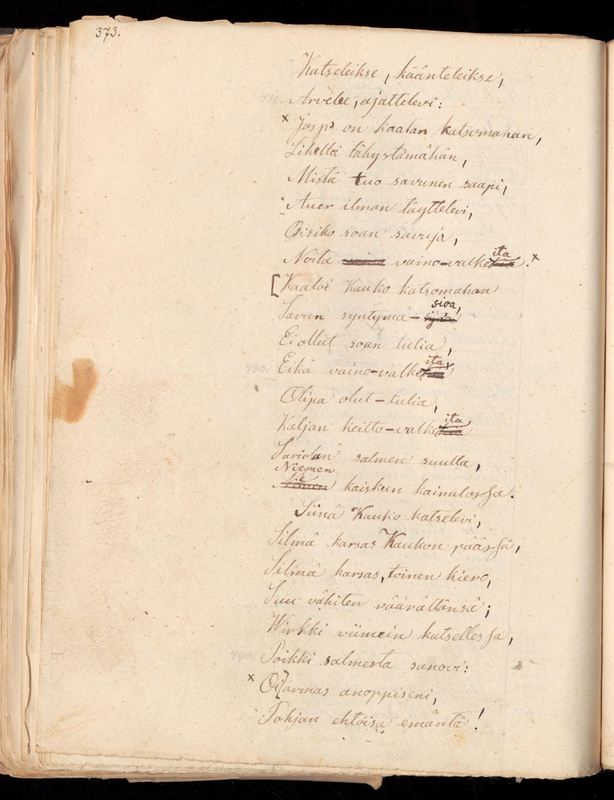 373.
Katseleikse, käänteleikse,
470. Arvelee, ajattelevi:
x Jospa on kaalan katsomahan,
Likeltä tähystämähän,
Mistä tuo savunen saapi,
Auer ilman täyttelevi,
Oisiko soan savuja,
Noita vaino-valkeita. x
[Kaaloi Kauko katsomahan
Savun syntymä-sioa,
Ei ollut soan tulia,
480. Eikä vaino-valkeita,
Olipa olut-tulia,
Kaljan keitto-valkeita
Sariolan salmen suulla,
Niemen kaiskun kainalossa.
Siinä Kauko katselevi,
Silmä karsas Kaukon päässä,
Silmä karsas, toinen kiero,
Suu vähiten väärällänsä;
Wirkki viimein katsellessa,
490. Poikki salmesta sanovi:
x Oi armas anoppiseni,
Pohjan ehtoisa emäntä!